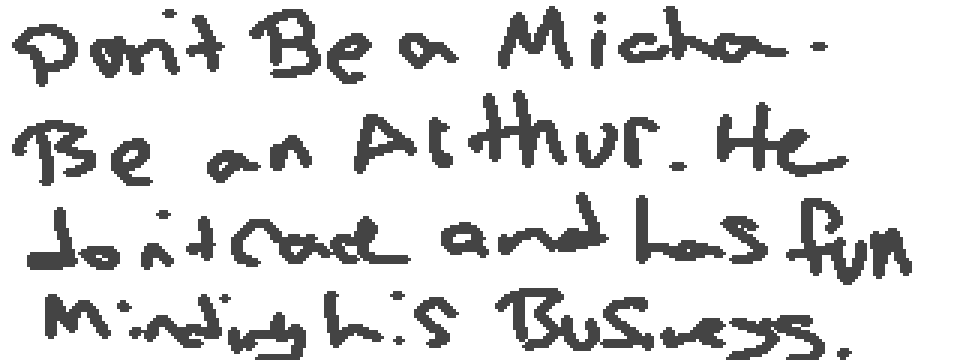 Don't Be a Micha.
Be an Arthur. He
don't care and has fun
Minding his Business.